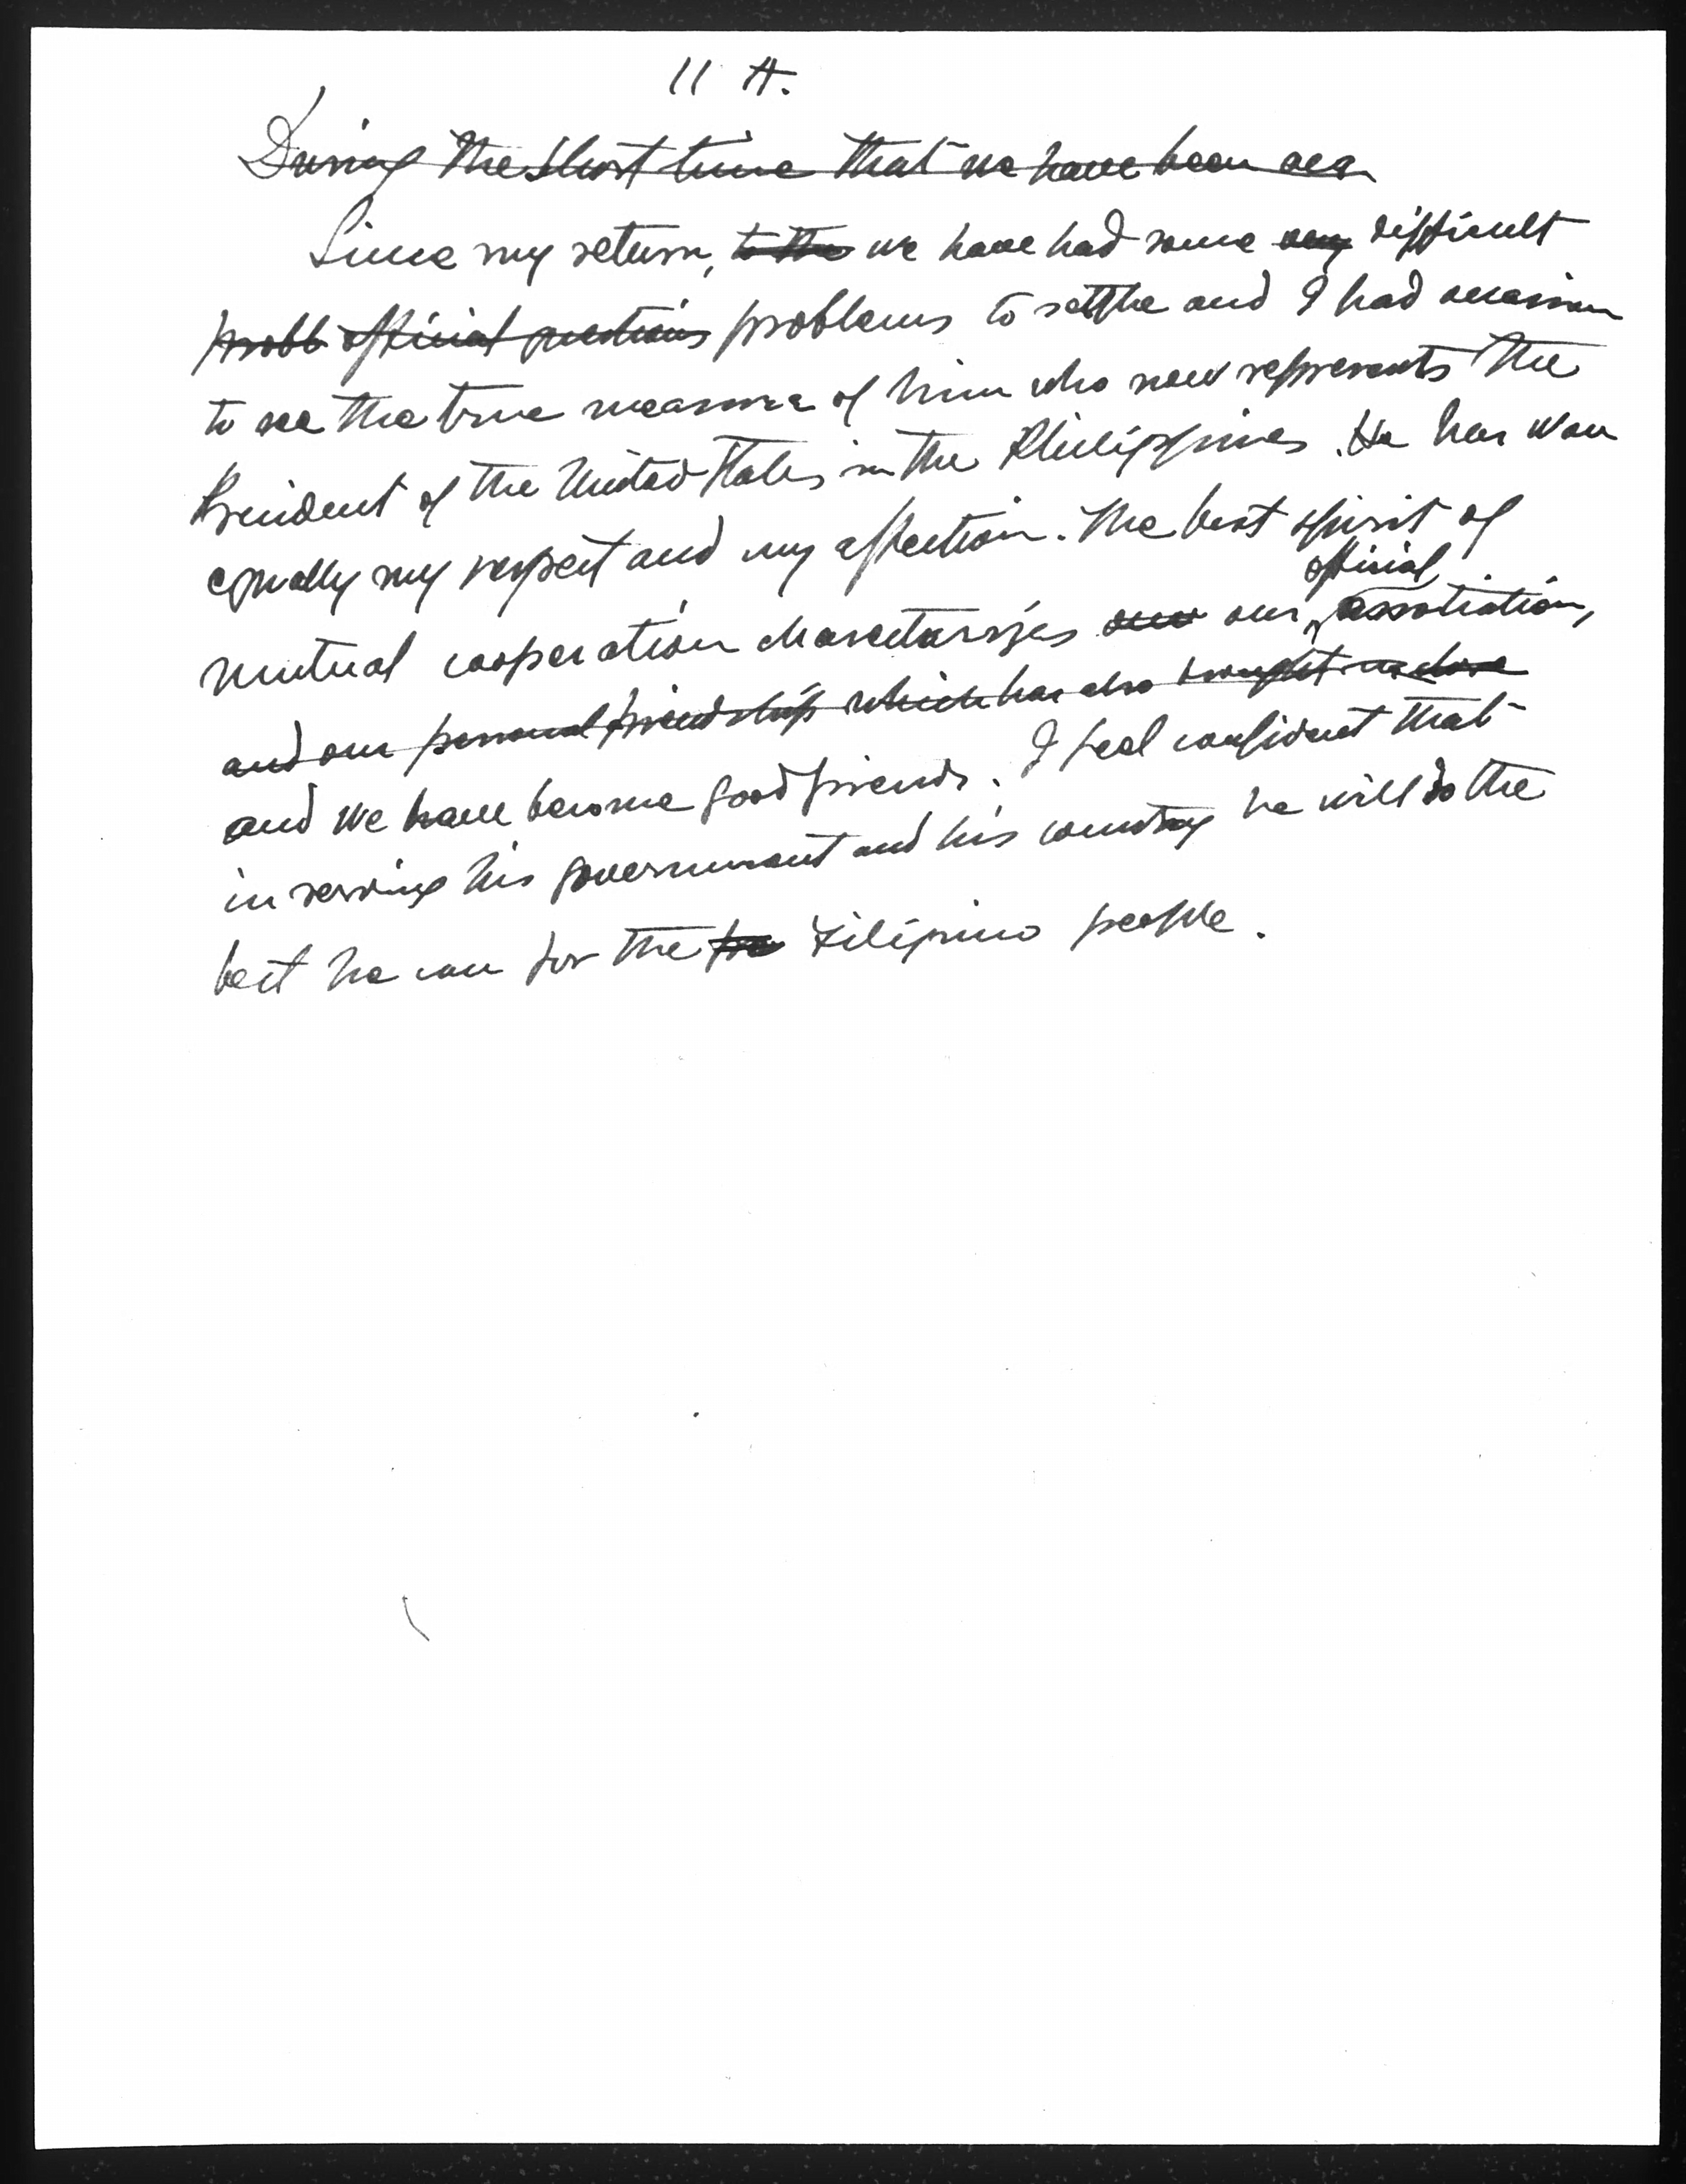 11 A.
During the short time that we have been
Since my return, to the we have had some very difficult
probl official questions problems to settle and I had occasion
to see the true measure of him who now represents the
President of the United States in the Philippines. He has won
equally my respect and my affection. The best spirit of
official
mutual cooperation characterizes our our association,
and our personal friendship which has also brought us close
and we have become good friends. I feel confident that
in serving his government and his country he will do the
best he can for the Filipino people.